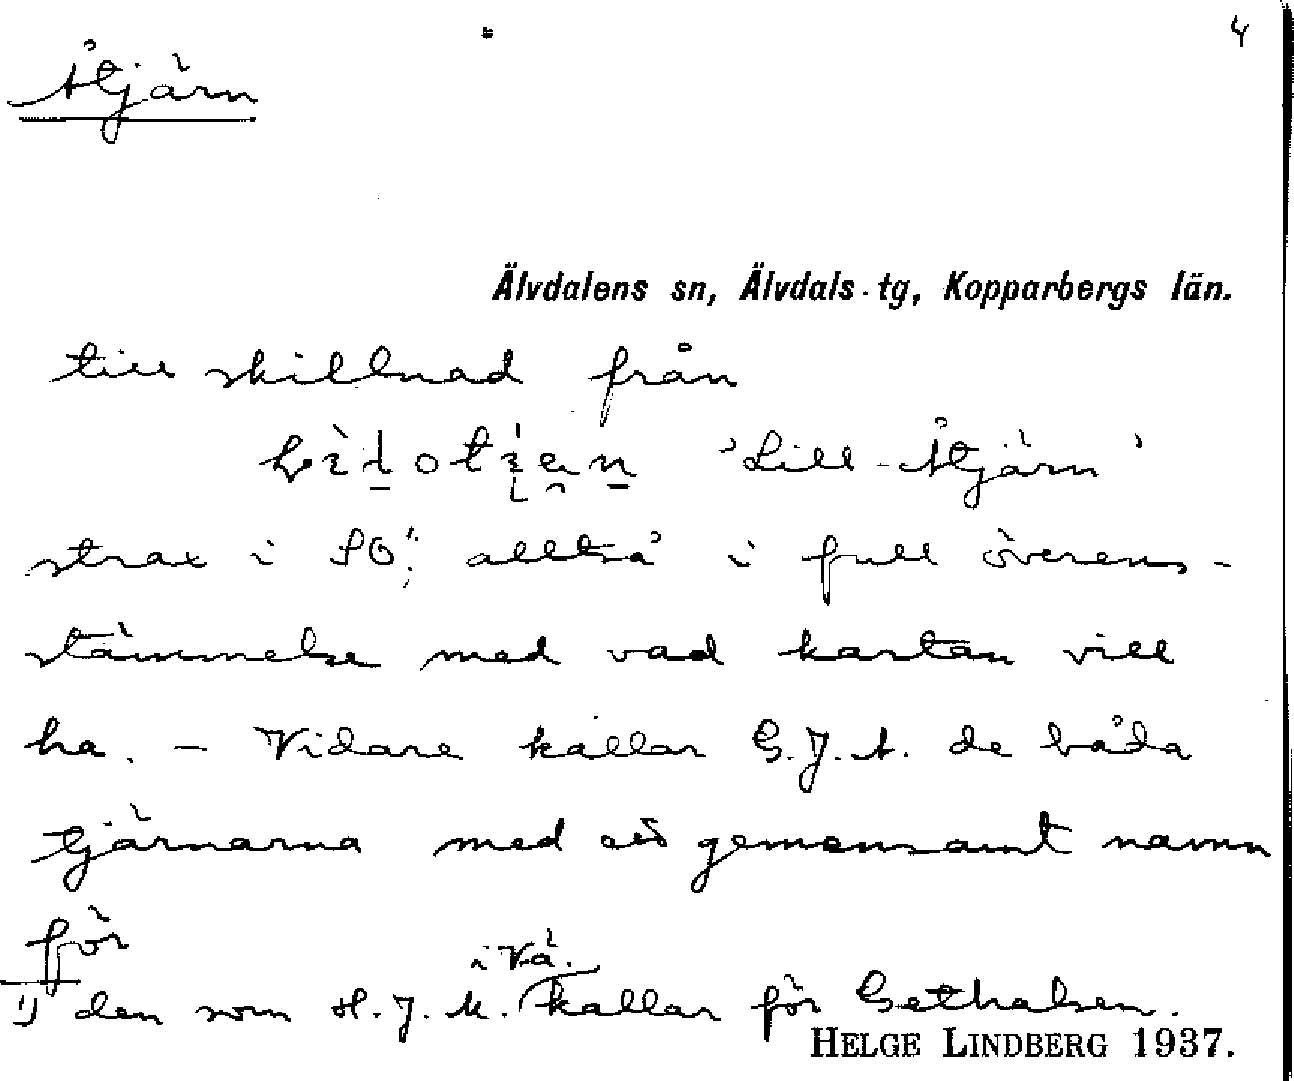 4
Åtjärn
Älvdalens sn, Älvdals tg, Kopparbergs län.
till skillnad från
'Lill-Åtjärn'
strax i SO¹⁾; alltså i full överens-
stämmelse med vad kartan vill
ha. – Vidare kallar G.J.A. de båda
tjärnarna med ett gemensamt namn
för
i Vä.
¹⁾ den som H.J.M. kallar för Gethalsen.
HELGE LINDBERG 1937.